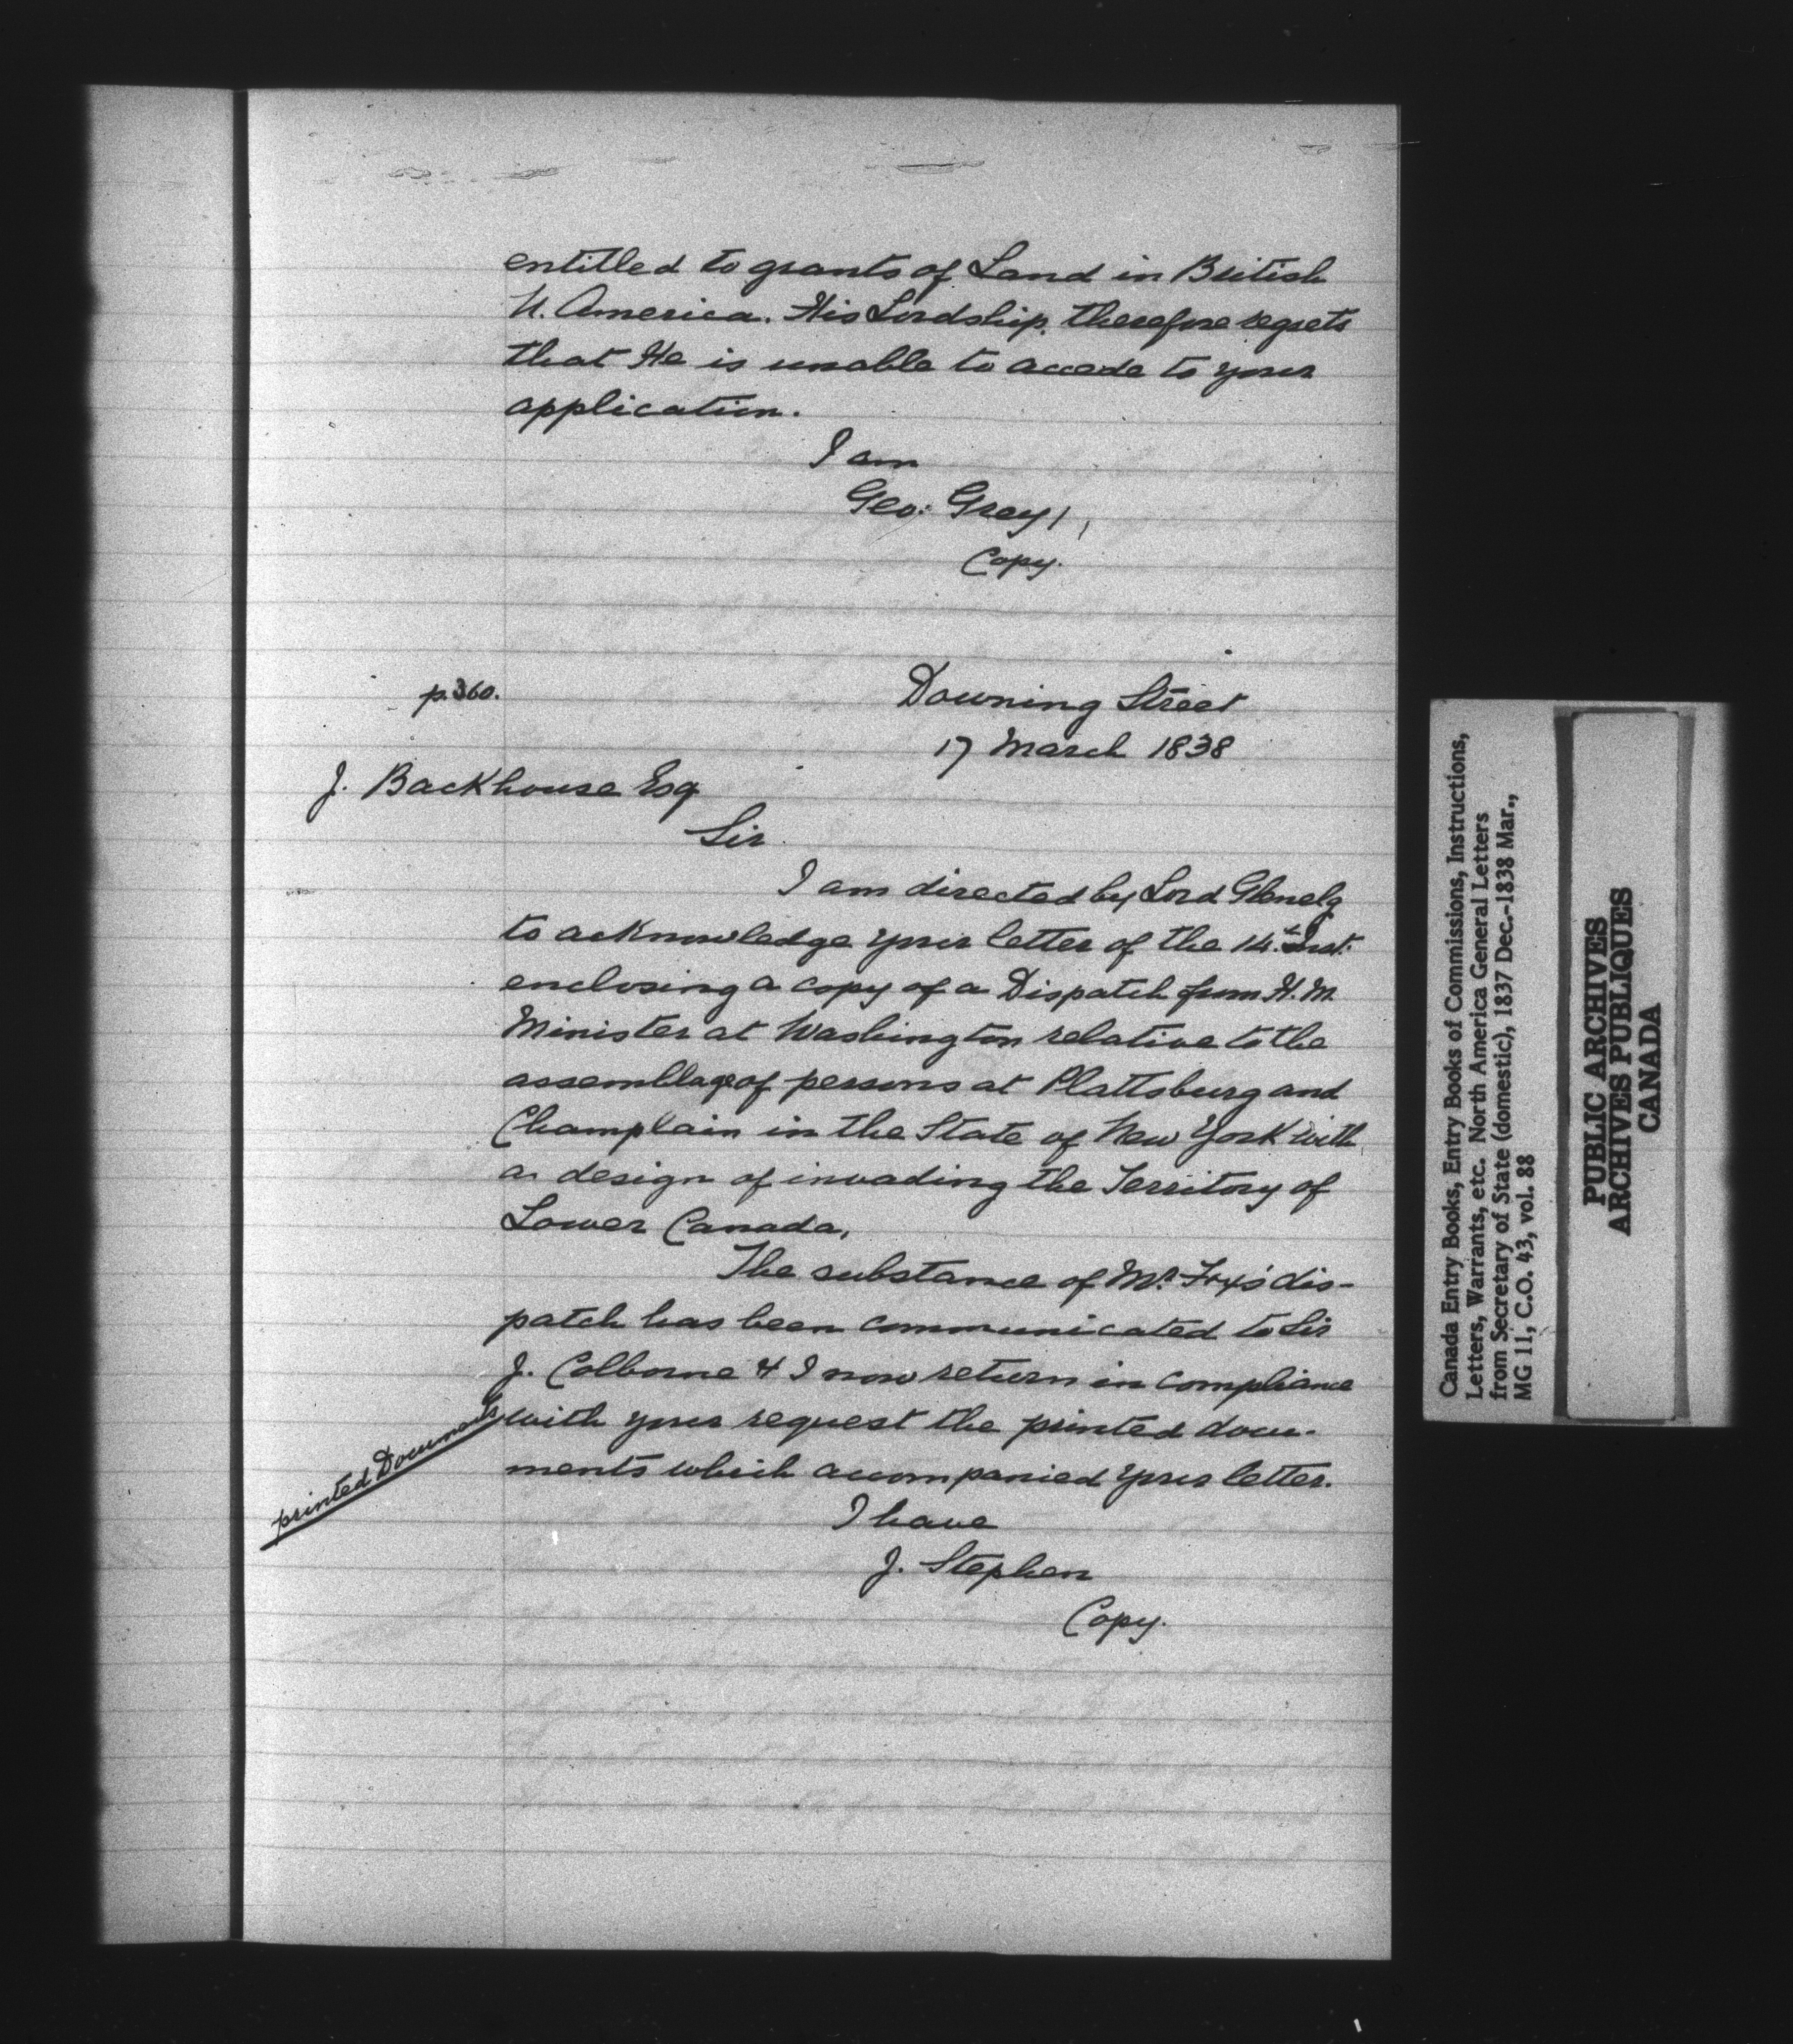 entitled to grants of Land in British
N. America. His Lordship therefore regrets
that He is unable to accede to your
application.
I am
Geo: Grey
Copy.
p. 360.
Downing Street
17 March 1838
J. Backhouse Esq
Sir
I am directed by Lord Glenelg
to acknowledge your letter of the 14th Inst.
enclosing a copy of a Dispatch from H. M.
Minister at Washington relative to the
assemblage of persons at Plattsburg and
Champlain in the State of New York with
a design of invading the Territory of
Lower Canada,
The substance of Mr. Fox's dis-
patch has been communicated to Sir
J. Colborne & I now return in compliance
with your request the printed docu-
ments which accompanied your letter.
printed Documents
I have
J. Stephen
Copy.
Canada Entry Books, Entry Books of Commissions, Instructions,
Letters, Warrants, etc. North America General Letters
from Secretary of State (domestic), 1837 Dec.-1838 Mar.,
MG 11, C.O. 43, vol. 88
PUBLIC ARCHIVES
ARCHIVES PUBLIQUES
CANADA